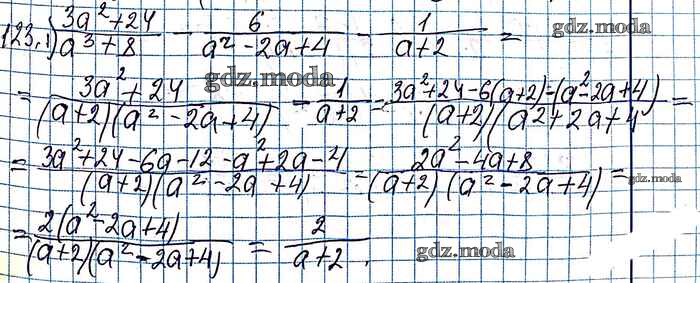 123.1) (3a² + 24)/(a³ + 8) - 6/(a² - 2a + 4) - 1/(a + 2) = gdz.moda
= (3a² + 24)/((a+2)(a² - 2a + 4)) - 1/(a+2) = (3a² + 24 - 6(a+2) - (a² - 2a + 4))/((a+2)(a² + 2a + 4 = gdz.moda
= (3a² + 24 - 6a - 12 - a² + 2a - 4)/((a+2)(a² - 2a + 4)) = (2a² - 4a + 8)/((a+2)(a² - 2a + 4)) = gdz.moda
= 2(a² - 2a + 4)/((a+2)(a² - 2a + 4)) = 2/(a+2). gdz.moda